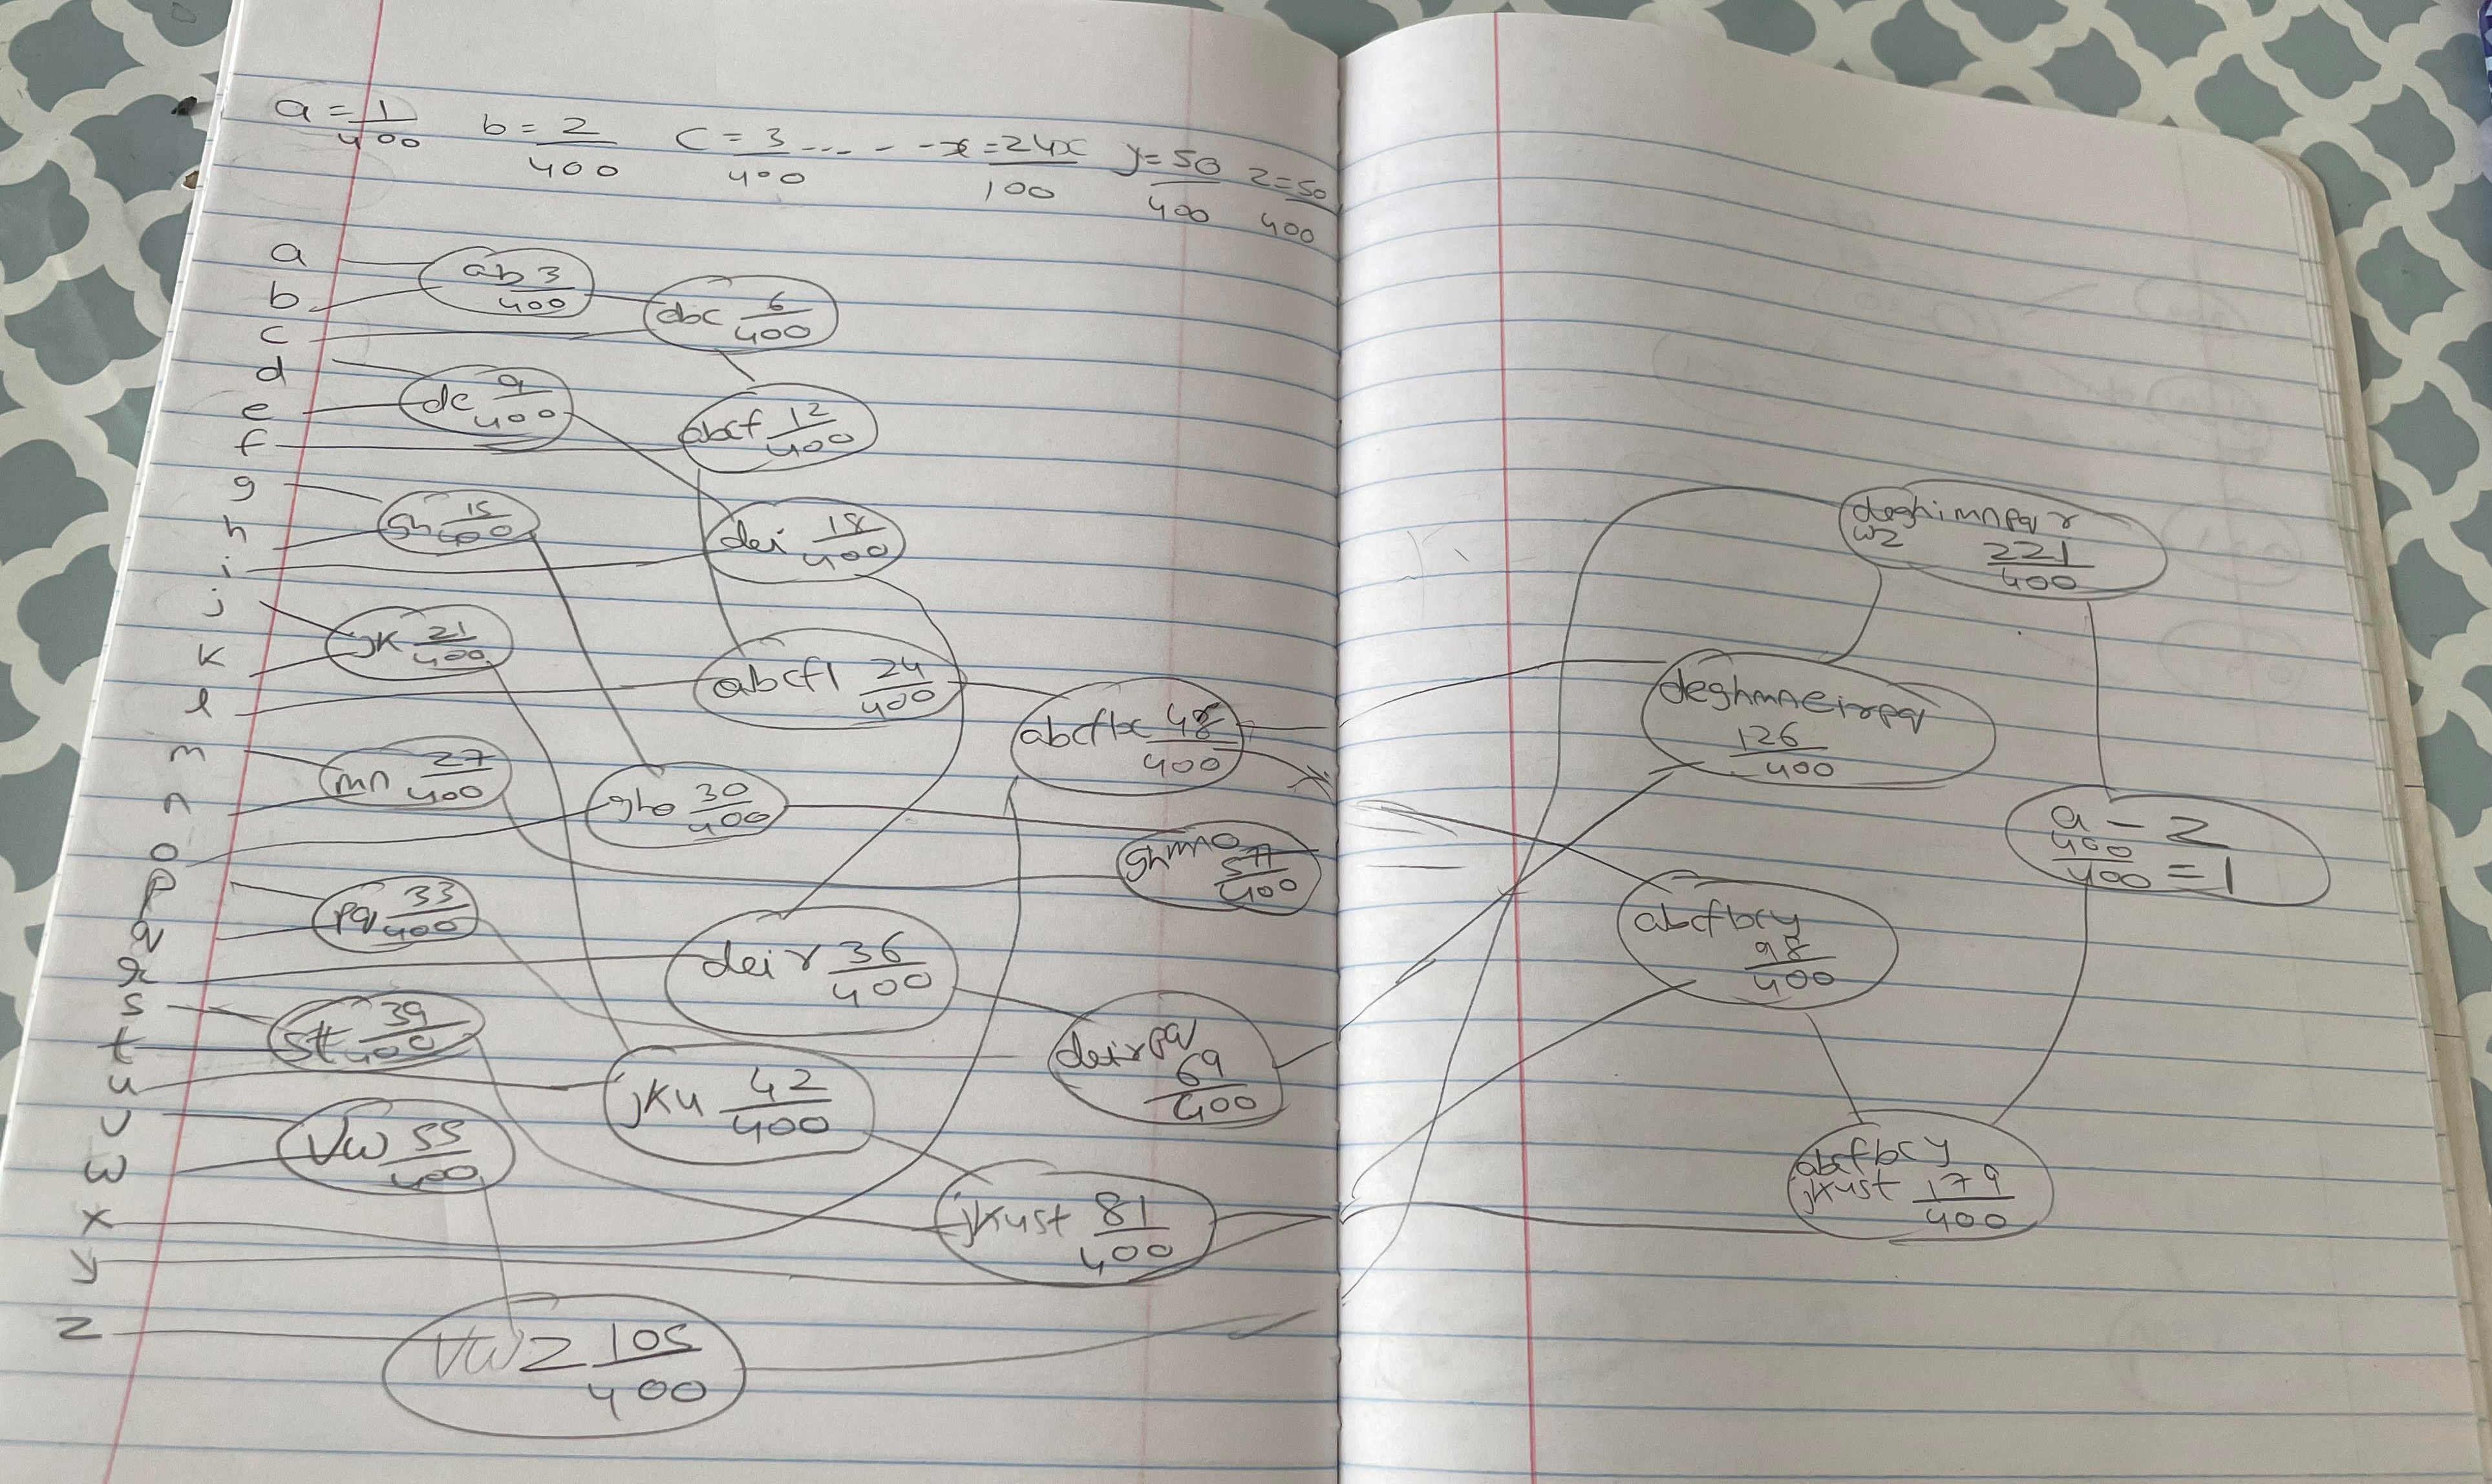 a = 1/400 b = 2/400 c = 3/400 .... - - x = 24x/100 y = 50/400 z = 50/400
a
ab 3/400
b
abc 6/400
c
d
de 9/400
e
abcf 12/400
f
g
gh 15/400
h
dei 18/400
i
j
jk 21/400
k
abcfl 24/400
l
abcflx 48/400
m
mn 27/400
n
gho 30/400
ghmno 57/400
o
p
pq 33/400
q
deir 36/400
r
s
st 39/400
t
deirpq 69/400
u
jku 42/400
v
vw 55/400
w
x
jkust 81/400
y
z
vwz 105/400
deghimnpqr
wz 221/400
deghmneirpq
126/400
a - z
400/400 = 1
abcfbcy
98/400
abcfbcy
jkust 179/400